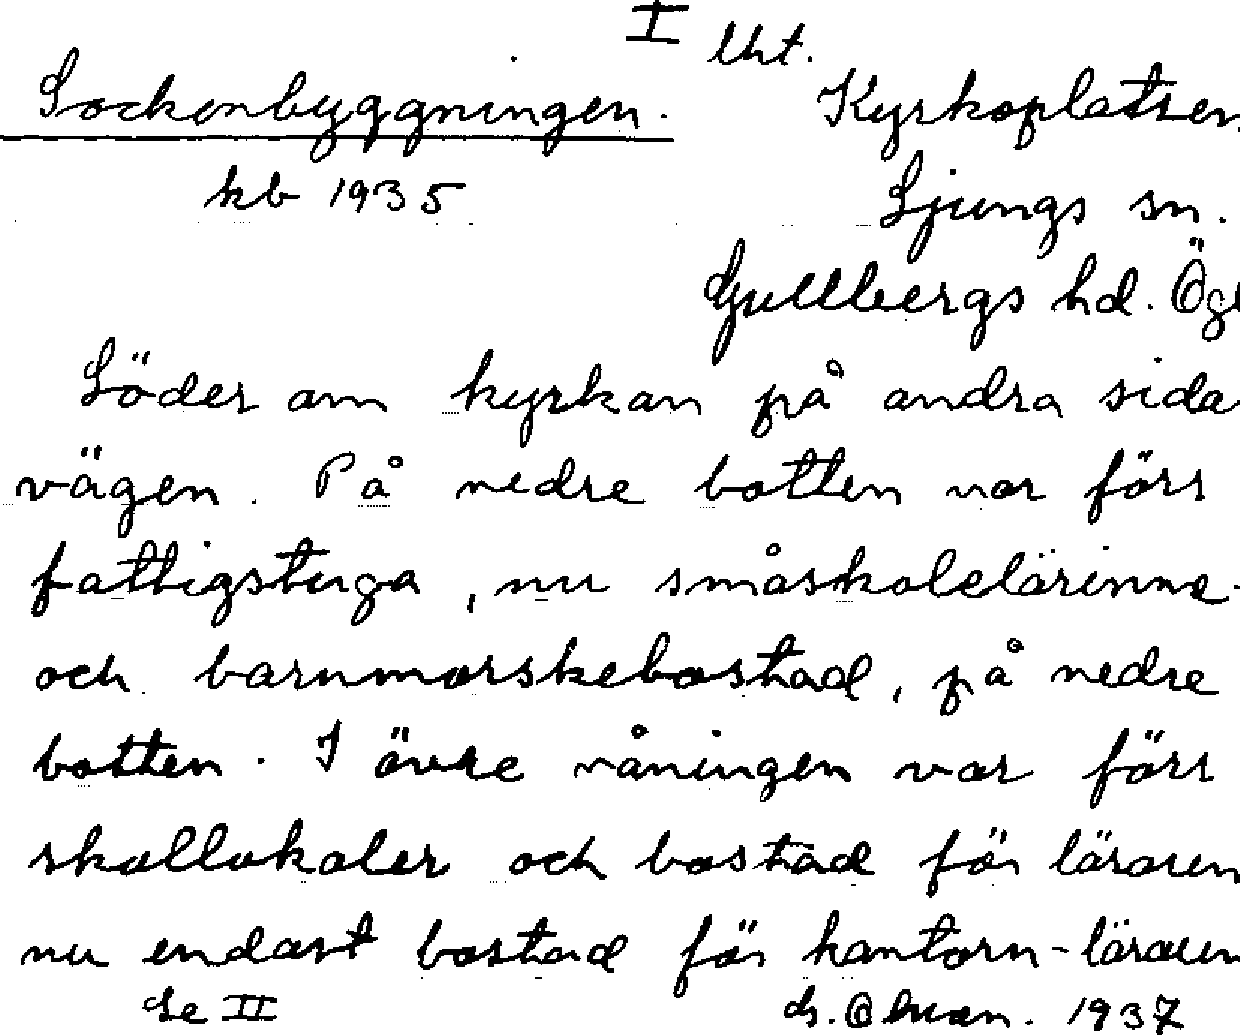 I lht.
Sockenbyggningen. Kyrkoplatsen
kb 1935 Ljungs sn.
Gullbergs hd. Ögl
Söder om kyrkan på andra sida
vägen. På nedre botten var förr
fattigstuga, nu småskolelärinne-
och barnmorskebostad, på nedre
botten. I övre våningen var förr
skollokaler och bostad för läraren
nu endast bostad för kantorn-läraren
Se II 1937